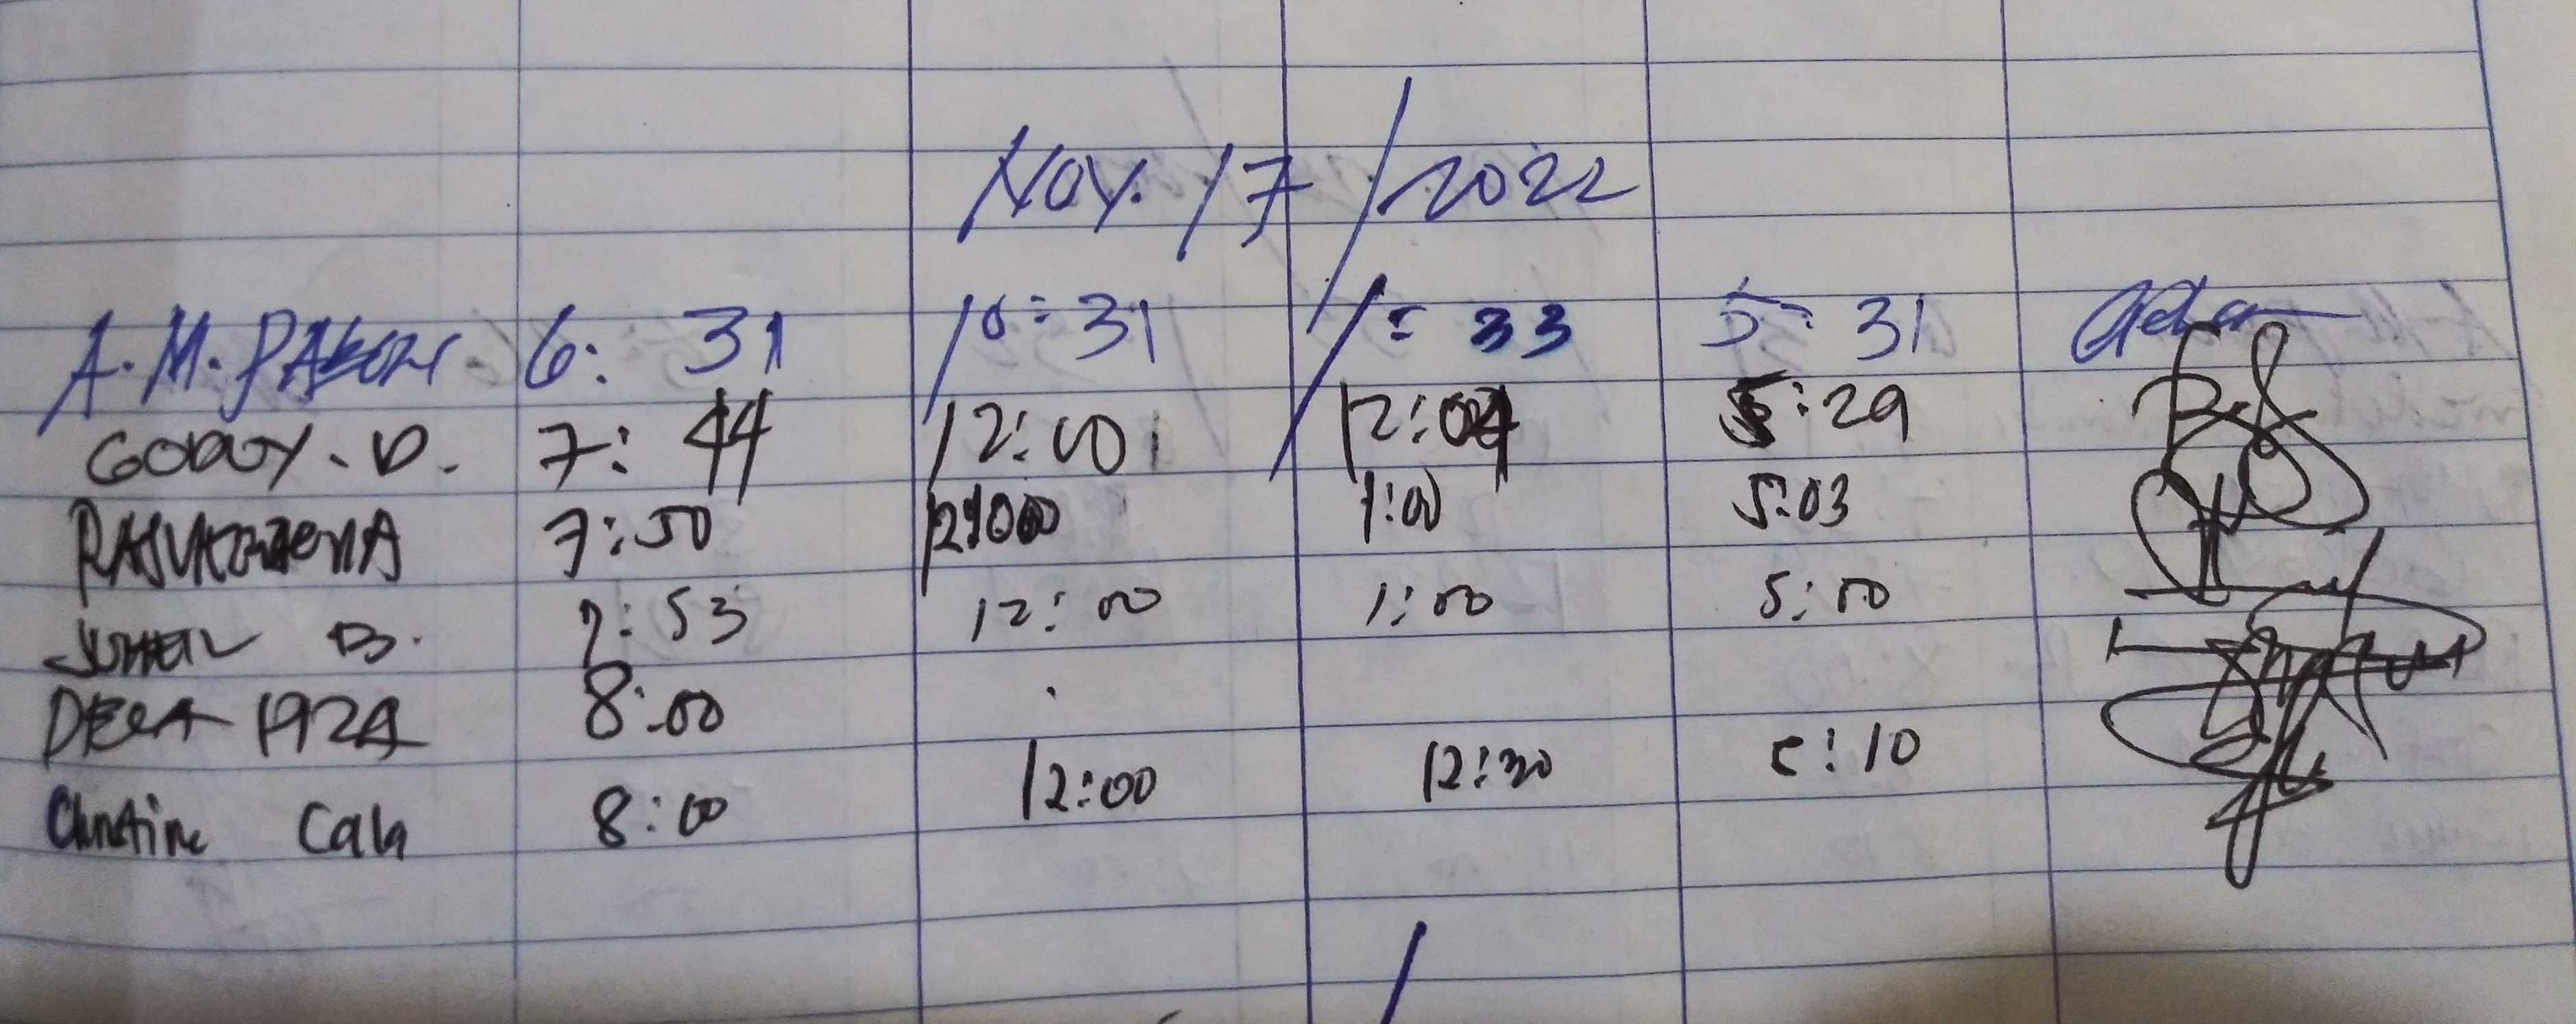 Nov. 17/2022
A.M. 6:31 10:31 1:33 5:31
GODOY. D. 7:44 12:00 12:04 5:29
7:50 12:00 1:00 5:03
B. 7:53 12:00 1:00 5:00
8:00
Christine Cala 8:00 12:00 12:30 5:10